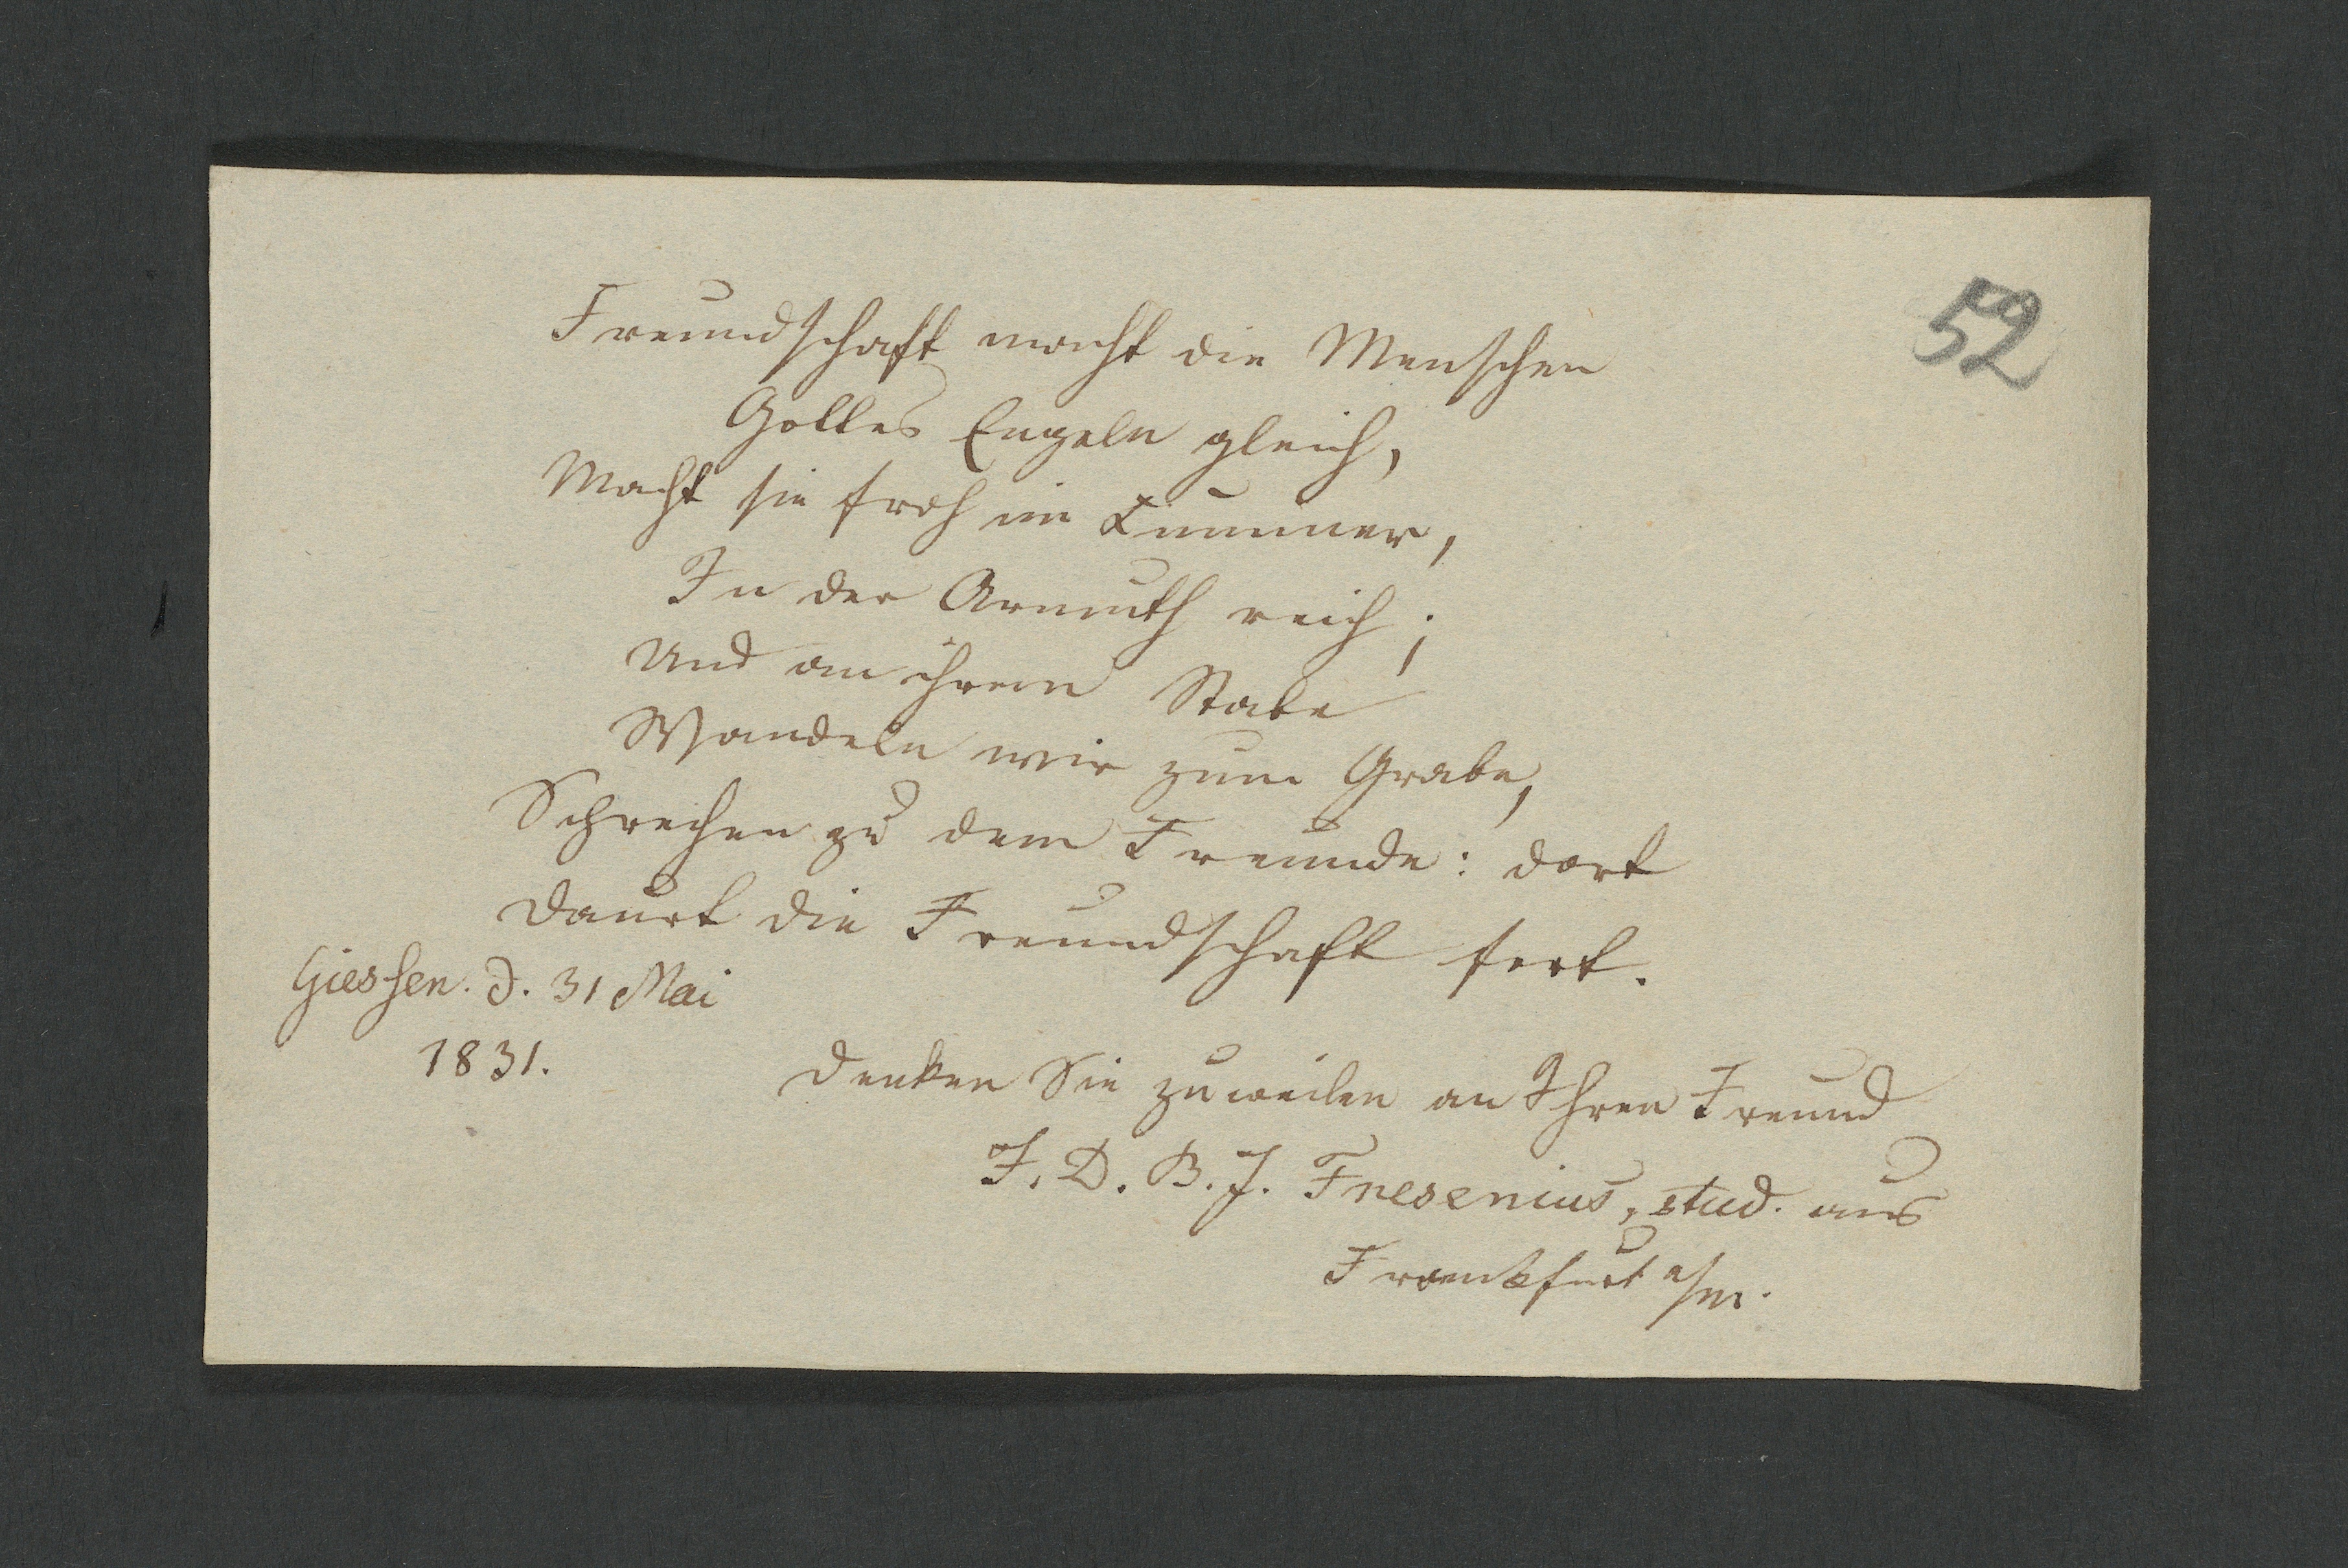 52
Freundschaft macht die Menschen
Gottes Engeln gleich,
Macht sie froh im Kummer,
In der Armuth reich;
Und an ihrem Stabe
Wandeln wir zum Grabe,
Sprechen zu dem Freunde: dort
Daurt die Freundschaft fort.
Giessen. d. 31 Mai
1831.
Denken Sie zuweilen an Ihren Freund
F. D. B. J. Fresenius, stud. aus
Frankfurt a/m.